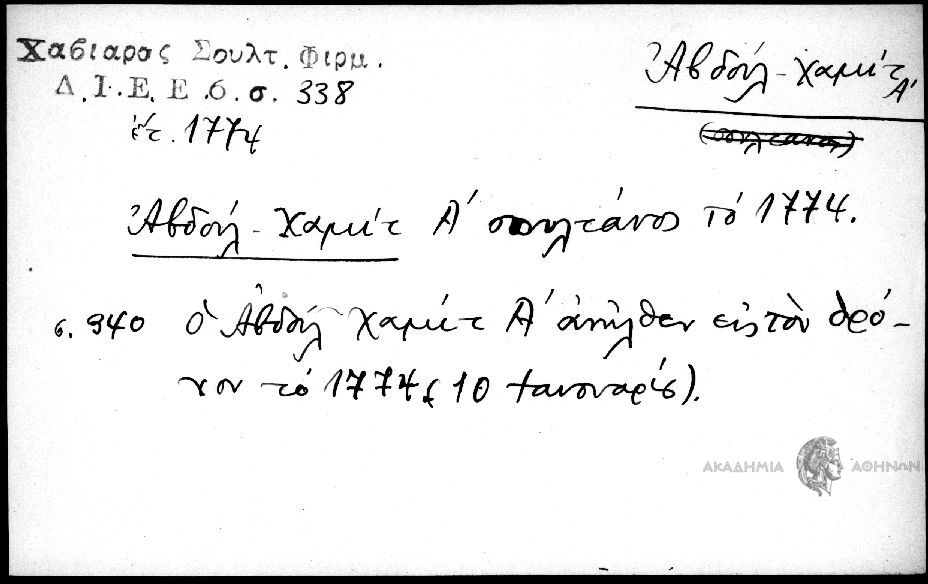 Χαβιαρας Σουλτ. Φιρμ.
Δ.Ι.Ε.Ε.6.σ. 338
ἔτ. 1774
Ἀβδοὺλ-Χαμὶτ Α'
(σουλτανος)
Ἀβδοὺλ-Χαμὶτ Α' σουλτάνος τὸ 1774.
σ. 340 Ὁ Ἀβδοὺλ Χαμὶτ Α' ἀνῆλθεν εἰς τὸν θρό-
νον τὸ 1774 (10 Ιανουαρίου).
ΑΚΑΔΗΜΙΑ ΑΘΗΝΩΝ